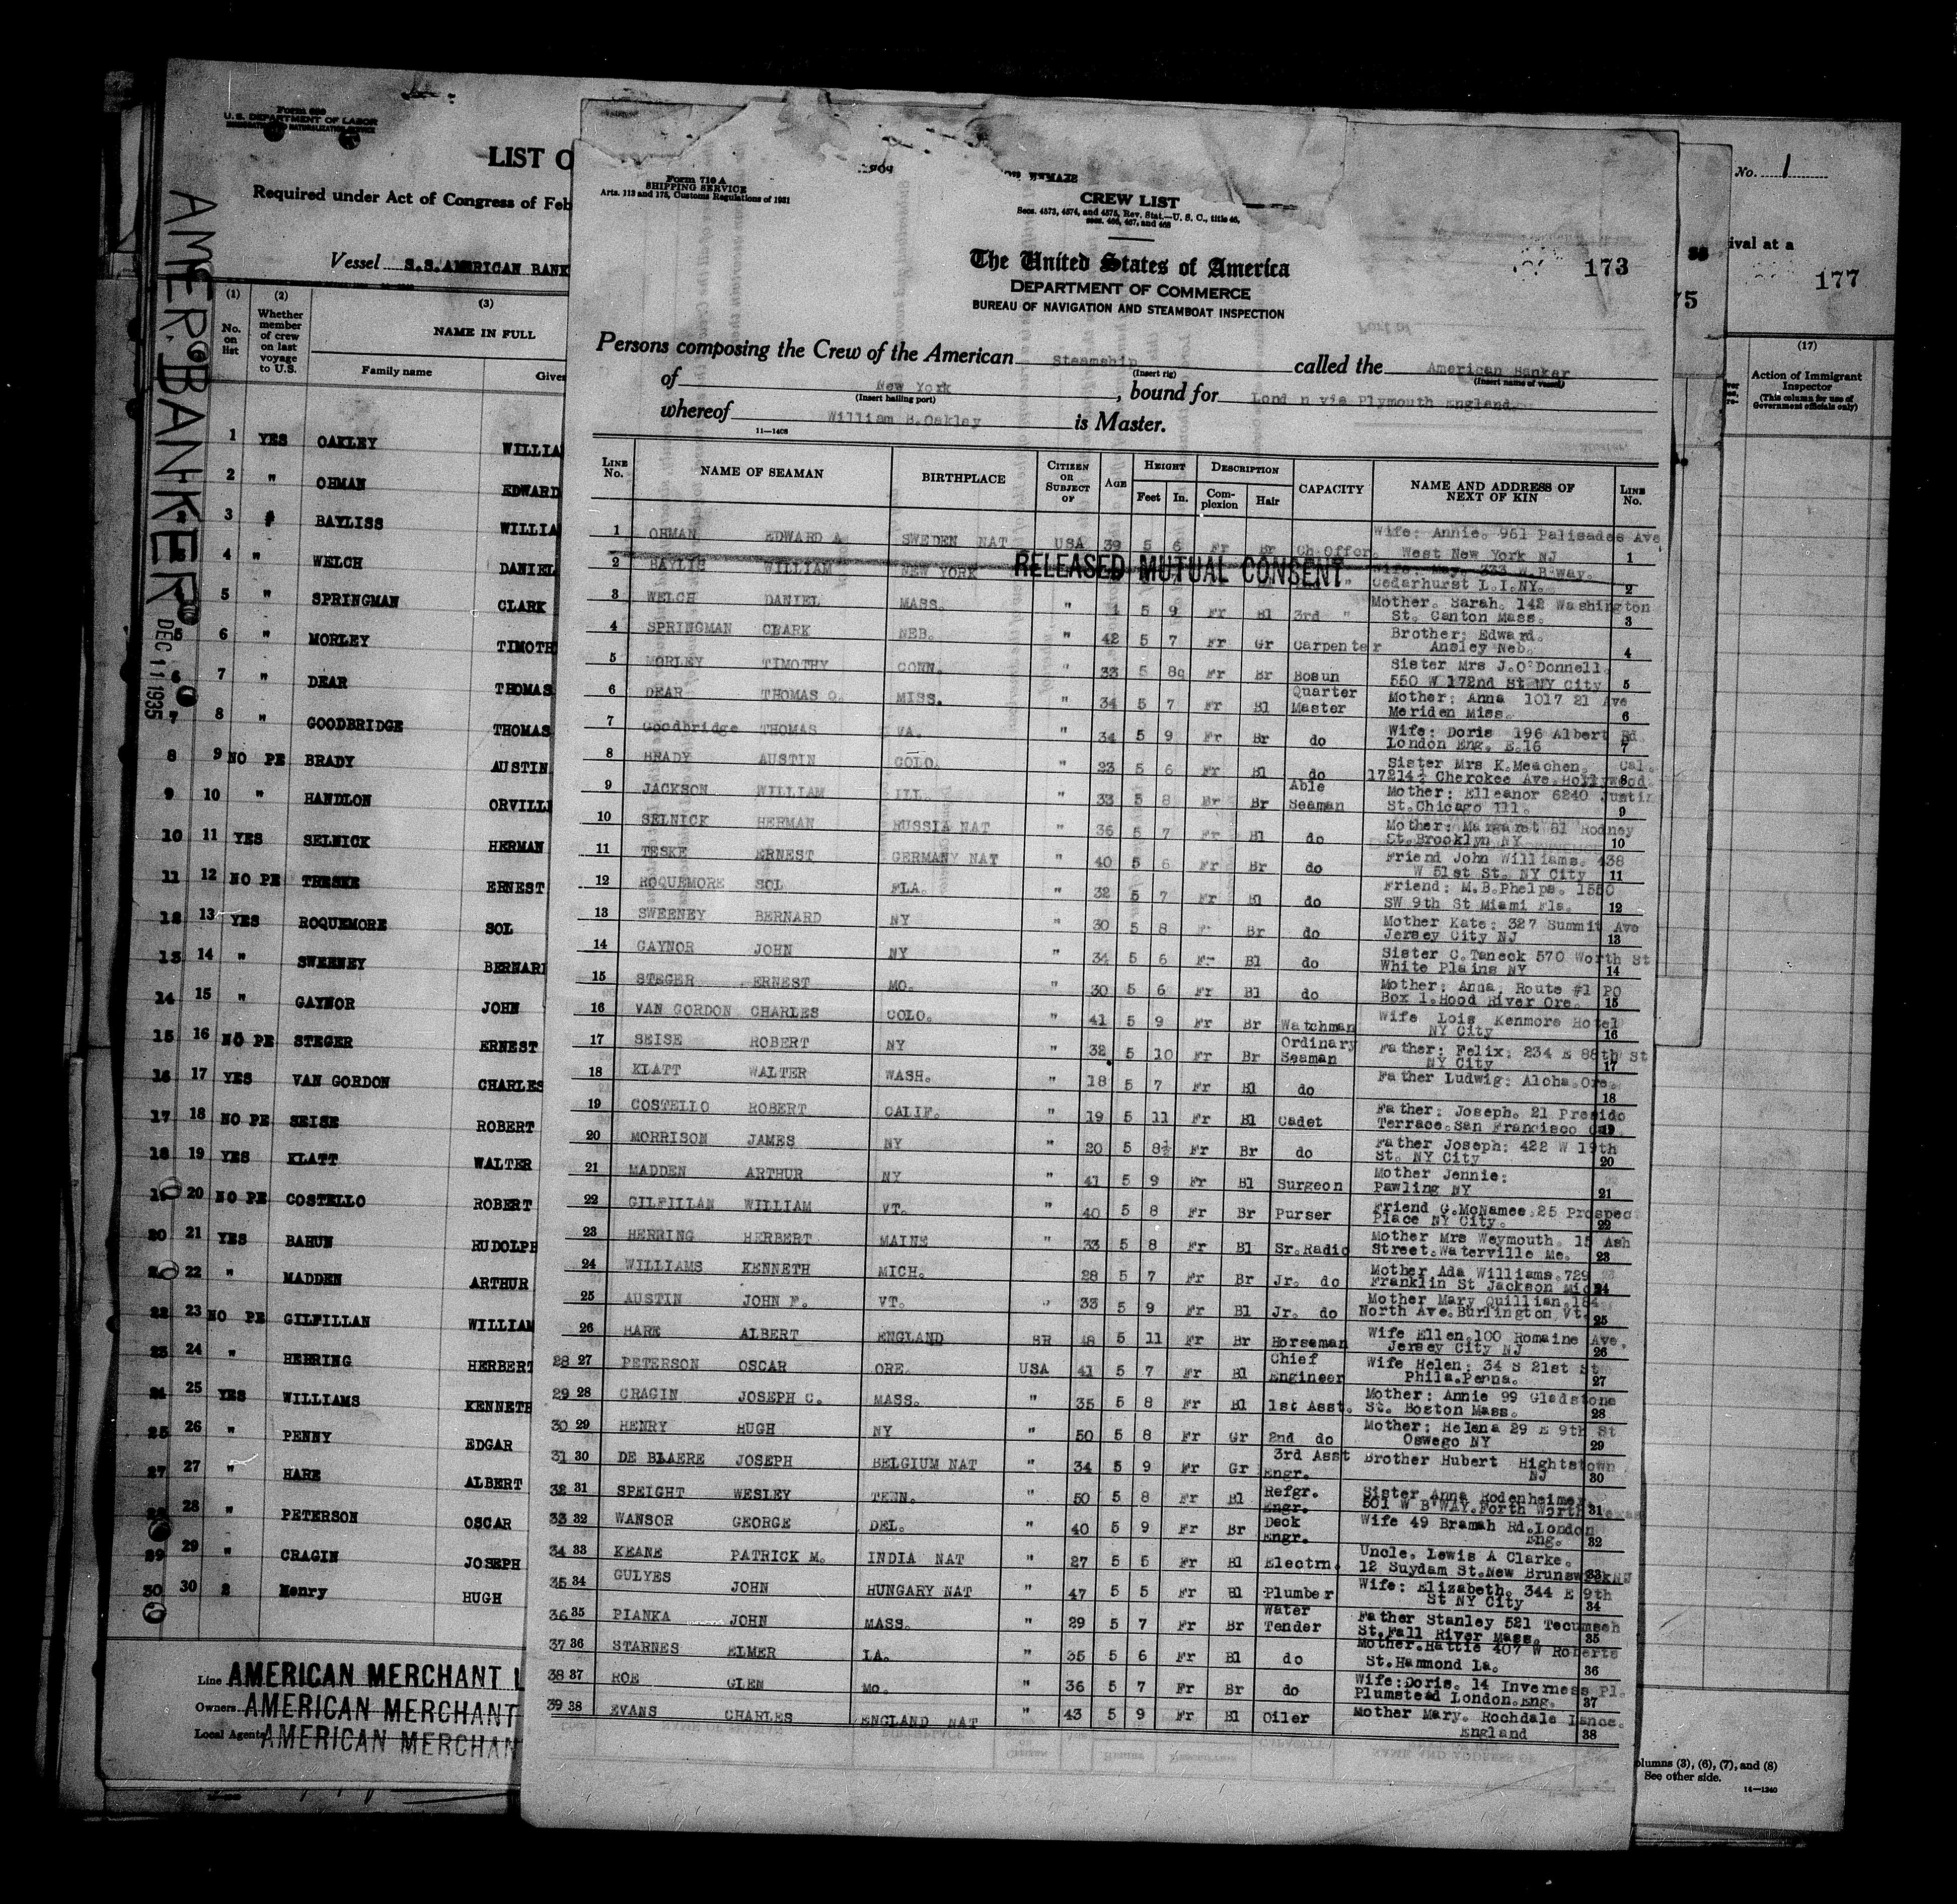 Form 680
U.S. DEPARTMENT OF LABOR
IMMIGRATION AND NATURALIZATION SERVICE
LIST O
Required under Act of Congress of Feb
Vessel S.S. AMERICAN BANK
AMER. BANKER
DEC 11 1935
(1) (2) (3)
No. on list
Whether member of crew on last voyage to U.S.
NAME IN FULL
Family name Given
1 YES OAKLEY WILLIA
2 " OHMAN EDWARD
3 " BAYLISS WILLIA
4 " WELCH DANIEL
5 " SPRINGMAN CLARK
5 6 " MORLEY TIMOTH
6 7 " DEAR THOMAS
7 8 " GOODBRIDGE THOMAS
8 9 NO PE BRADY AUSTIN
9 10 " HANDLON ORVILLE
10 11 YES SELNICK HERMAN
11 12 NO PE TRESKE ERNEST
12 13 YES ROQUEMORE SOL
13 14 " SWEENEY BERNARD
14 15 " GAYNOR JOHN
15 16 NO PE STEGER ERNEST
16 17 YES VAN GORDON CHARLES
17 18 NO PE SEISE ROBERT
18 19 YES KLATT WALTER
19 20 NO PE COSTELLO ROBERT
20 21 YES BAHUN RUDOLPH
22 " MADDEN ARTHUR
22 23 NO PE GILFILLAN WILLIAM
23 24 " HERRING HERBERT
24 25 YES WILLIAMS KENNETH
25 26 " PENNY EDGAR
27 27 " HARE ALBERT
28 28 " PETERSON OSCAR
29 29 " CRAGIN JOSEPH
30 30 Henry HUGH
Line AMERICAN MERCHANT L
Owners AMERICAN MERCHANT
Local Agents AMERICAN MERCHAN
Form 710 A
SHIPPING SERVICE
Arts. 113 and 175, Customs Regulations of 1931
CREW LIST
Secs. 4573, 4574, and 4575, Rev. Stat.—U. S. C., title 46,
secs. 466, 467, and 468
The United States of America
DEPARTMENT OF COMMERCE
BUREAU OF NAVIGATION AND STEAMBOAT INSPECTION
173
Persons composing the Crew of the American Steamship called the American Banker
(Insert rig) (Insert name of vessel)
of New York , bound for Lond n via Plymouth England.
(Insert hailing port)
whereof William B. Oakley is Master.
11—1408
LINE No. NAME OF SEAMAN BIRTHPLACE CITIZEN OR SUBJECT OF AGE HEIGHT Feet In. DESCRIPTION Complexion Hair CAPACITY NAME AND ADDRESS OF NEXT OF KIN LINE No.
1 OHMAN EDWARD A SWEDEN NAT USA 39 5 6 Fr Br Ch Offcr. Wife: Annie. 961 Palisades Ave West New York NJ 1
2 BAYLIS WILLIAM NEW YORK RELEASED MUTUAL CONSENT " Wife: May. 333 W. B'way. Cedarhurst L.I.NY. 2
3 WELCH DANIEL MASS. " 5 9 Fr Bl 3rd " Mother. Sarah. 142 Washington St. Canton Mass. 3
4 SPRINGMAN CLARK NEB. " 42 5 7 Fr Gr Carpenter Brother: Edward. Ansley Neb. 4
5 MORLEY TIMOTHY CONN. " 33 5 8 Fr Br Bosun Sister Mrs J.O'Donnell. 550 W 172nd St NY City 5
6 DEAR THOMAS O. MISS. " 34 5 7 Fr Bl Quarter Master Mother: Anna 1017 21 Ave Meriden Miss. 6
7 Goodbridge THOMAS VA. " 34 5 9 Fr Br do Wife: Doris 196 Albert Rd. London Eng. E.16 7
8 BRADY AUSTIN COLO. " 23 5 6 Fr Bl do Sister Mrs K.Meachen. Cal. 17214½ Cherokee Ave.Hollywood. 8
9 JACKSON WILLIAM ILL. " 33 5 8 Br Br Able Seaman Mother: Elleanor 6240 Justin St.Chicago Ill. 9
10 SELNICK HERMAN RUSSIA NAT " 36 5 7 Fr Bl do Mother: Margaret 81 Rodney St.Brooklyn NY 10
11 TESKE ERNEST GERMANY NAT " 40 5 6 Fr Br do Friend John Williams. 438 W 51st St. NY City 11
12 ROQUEMORE SOL FLA. " 32 5 7 Fr Bl do Friend: M.B.Phelps. 1550 SW 9th St Miami Fla. 12
13 SWEENEY BERNARD NY " 30 5 8 Br do Mother Kate: 327 Summit Ave Jersey City NJ 13
14 GAYNOR JOHN NY " 34 5 6 Fr Bl do Sister C.Taneck 570 Worth St White Plains NY 14
15 STEGER ERNEST MO. " 30 5 6 Fr Bl do Mother: Anna, Route #1 PO Box 1.Hood River Ore. 15
16 VAN GORDON CHARLES COLO. " 41 5 9 Fr Br Watchman Wife Lois Kenmore Hotel NY City 16
17 SEISE ROBERT NY " 32 5 10 Fr Br Ordinary Seaman Father: Felix. 234 E 88th St NY City 17
18 KLATT WALTER WASH. " 18 5 7 Fr Bl do Father Ludwig: Aloha.Ore. 18
19 COSTELLO ROBERT CALIF. " 19 5 11 Fr Bl Cadet Father: Joseph. 21 Presido Terrace.San Francisco Cal 19
20 MORRISON JAMES NY " 20 5 8½ Fr Br do Father Joseph: 422 W 19th St. NY City 20
21 MADDEN ARTHUR NY " 41 5 9 Fr Bl Surgeon Mother Jennie: Pawling NY 21
22 GILFILLAN WILLIAM VT. " 40 5 8 Fr Br Purser Friend G.McNamee.25 Prospec Place NY City. 22
23 HERRING HERBERT MAINE " 33 5 8 Fr Bl Sr.Radio Mother Mrs Weymouth. 15 Ash Street.Waterville Me. 23
24 WILLIAMS KENNETH MICH. 28 5 7 Fr Br Jr. do Mother Ada Williams.729 Franklin St Jackson Mich 24
25 AUSTIN JOHN F. VT. " 33 5 9 Fr Bl Jr. do Mother Mary Quillian.184 North Ave.Burlington Vt. 25
26 HARE ALBERT ENGLAND BR 48 5 11 Fr Br Horseman Wife Ellen.100 Romaine Ave. Jersey City NJ 26
28 27 PETERSON OSCAR ORE. USA 41 5 7 Fr Bl Chief Engineer Wife Helen: 34 S 21st St Phila.Penna. 27
29 28 CRAGIN JOSEPH C. MASS. " 35 5 8 Fr Bl 1st Asst. Mother: Annie 99 Gladstone St. Boston Mass. 28
30 29 HENRY HUGH NY " 50 5 8 Fr Gr 2nd do Mother: Helena 29 E 9th St Oswego NY 29
31 30 DE BLAERE JOSEPH BELGIUM NAT " 34 5 9 Fr Gr 3rd Asst Engr. Brother Hubert Hightstown NJ 30
32 31 SPEIGHT WESLEY TENN. " 50 5 8 Fr Bl Refgr. Engr. Sister Anna Rodenheimer 501 W B'WAY.Forth Worth Texas 31
33 32 WANSOR GEORGE DEL. " 40 5 9 Fr Br Deck Engr. Wife 49 Bramah Rd.London Eng. 32
34 33 KEANE PATRICK M. INDIA NAT " 27 5 5 Fr Bl Electrn. Uncle. Lewis A Clarke. 12 Suydam St.New Brunswick NJ 33
35 34 GULYES JOHN HUNGARY NAT " 47 5 5 Fr Bl Plumber Wife: Elizabeth. 344 E 9th St NY City 34
36 35 PIANKA JOHN MASS. " 29 5 7 Fr Br Water Tender Father Stanley 521 Tecumseh St.Fall River Mass. 35
37 36 STARNES ELMER LA. " 35 5 6 Fr Bl do Mother.Hattie 407 W Roberts St.Hammond La. 36
38 37 ROE GLEN Mo. " 36 5 7 Fr Br do Wife:Doris. 14 Inverness Pl. Plumstead London.Eng. 37
39 38 EVANS CHARLES ENGLAND NAT " 43 5 9 Fr Bl Oiler Mother Mary. Rochdale Lance. England 38
No. 1
ival at a
75
177
(17)
Action of Immigrant Inspector
(This column for use of Government officials only)
olumns (3), (6), (7), and (8)
See other side.
14—1240